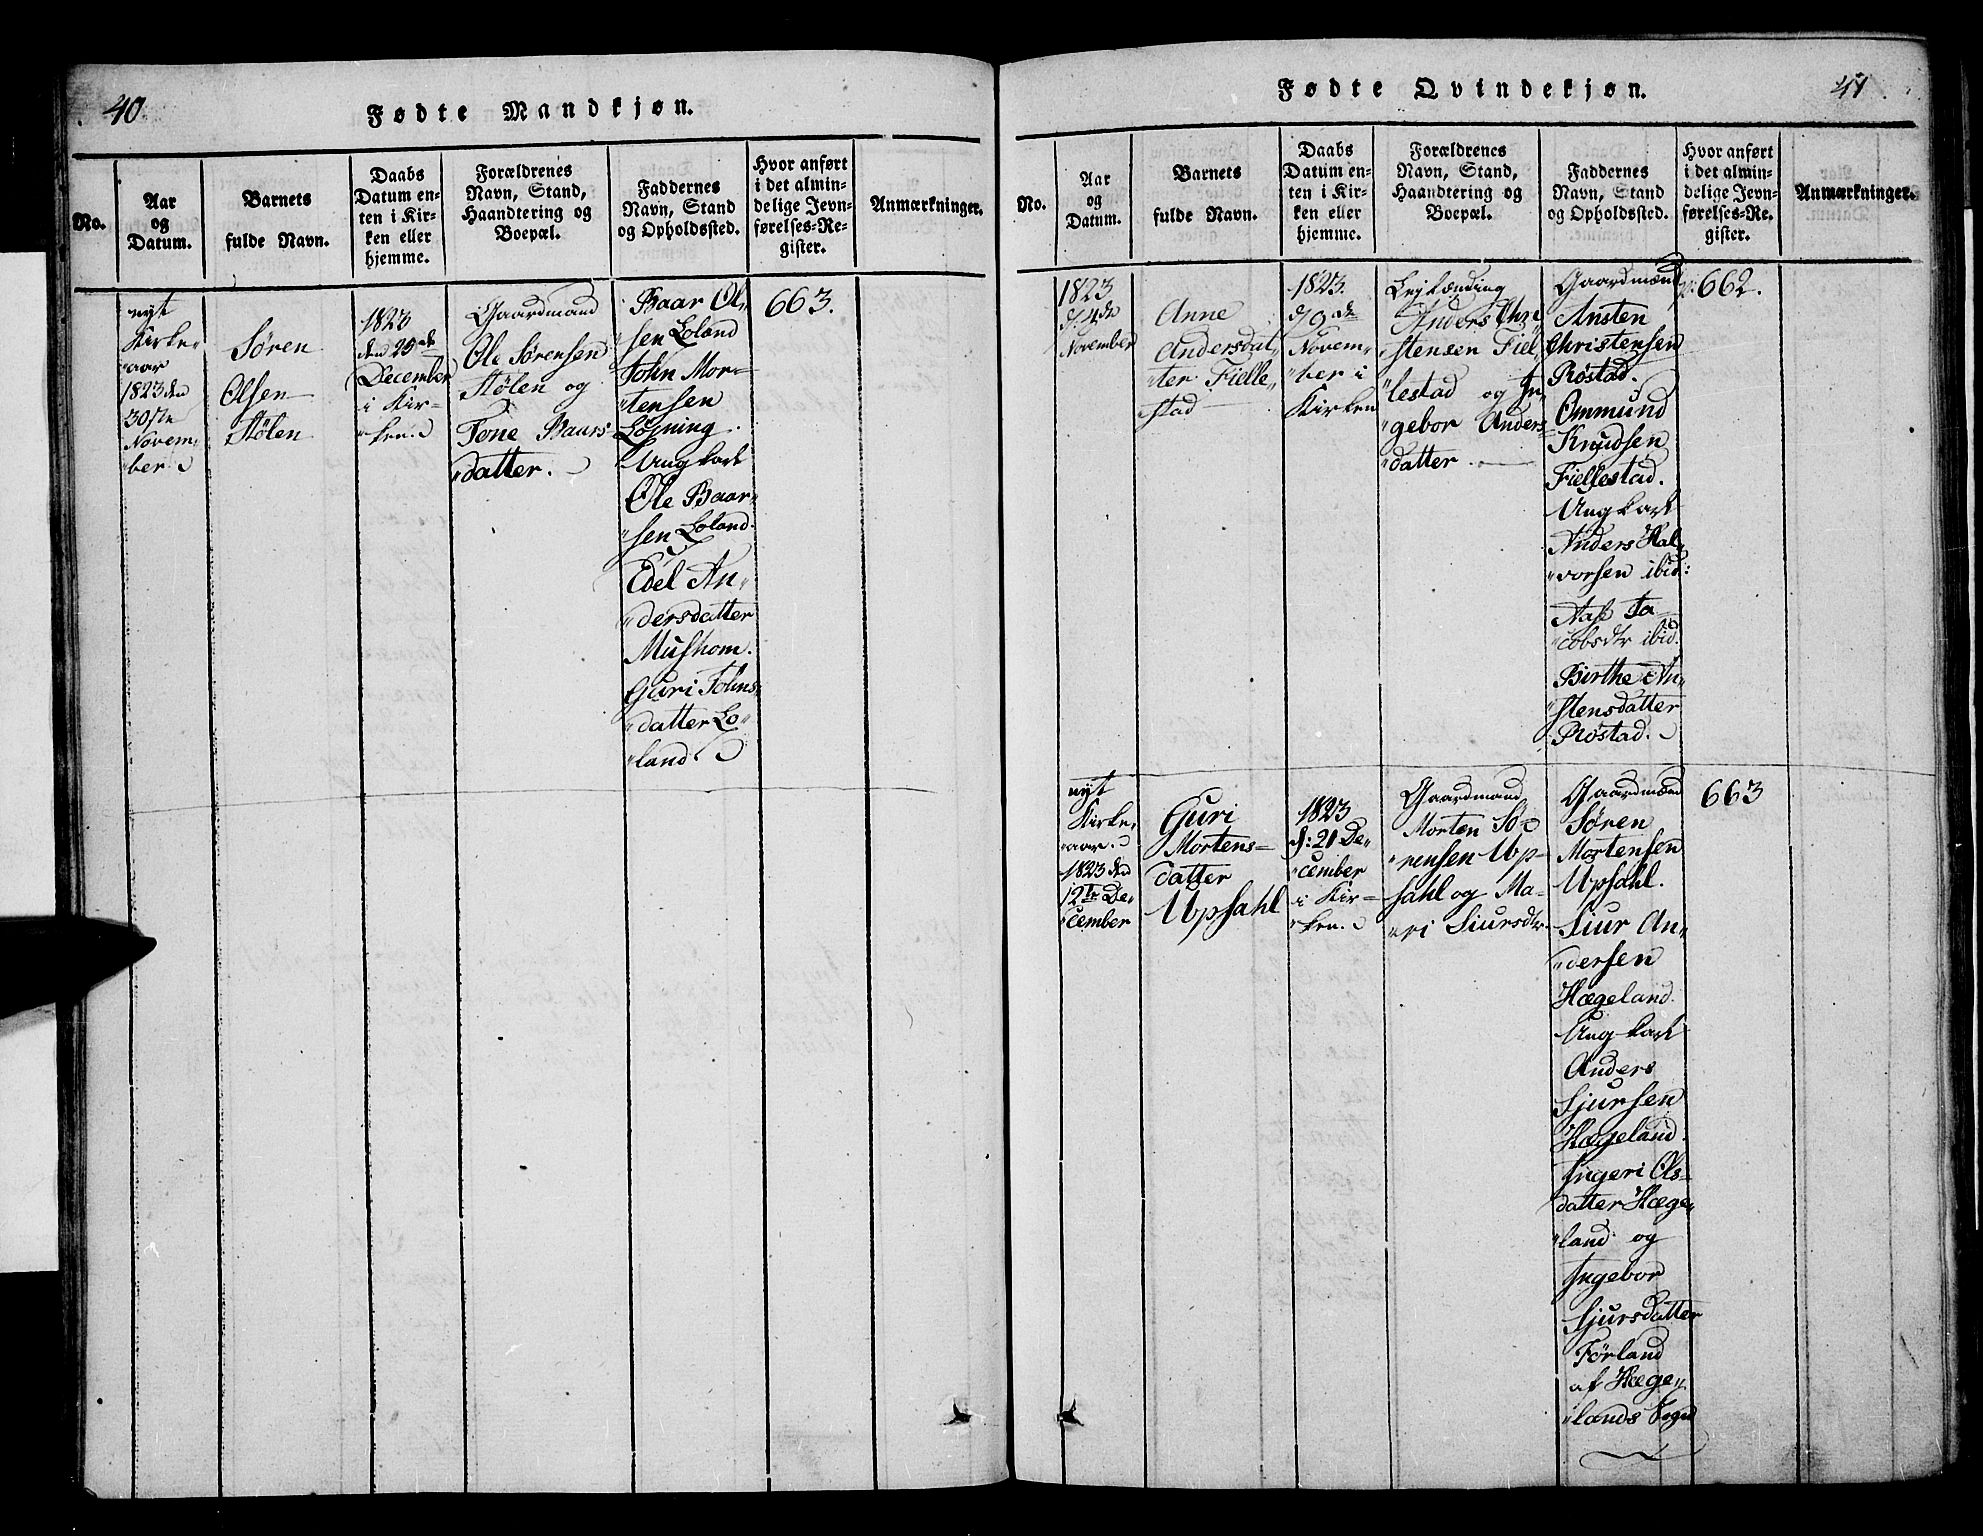 40.
Fødte Mandkjøn.
No.
Aar
og
Datum.
Barnets
fulde Navn.
Daabs
Datum en-
ten i Kir-
ken eller
hjemme.
Forældrenes
Navn, Stand,
Haandtering og
Boepæl.
Faddernes
Navn, Stand
og Opholdssted.
Hvor anført
i det almin-
delige Jevn-
førelses-Re-
gister.
Anmærkninger.
nyt
Kirke-
"aar
1823 den
30ste
Novem-
"ber
Søren
Olsen
Stølen
1823
den 25de
December
i Kir-
"ken.
Gaardmand
Ole Sørensen
Stølen og
Tone Baars-
"datter.
Baar Ol-
"sen Loland
John Mor-
"tensen
Løgning.
Ungkarl
Ole Baar-
"sen Loland.
Edel An-
"dersdatter
Mushom.
Guri Johns-
"datter Lo-
"land.
663.
Fødte Qvindekjøn.
41
No.
Aar
og
Datum.
Barnets
fulde Navn.
Daabs
Datum en-
ten i Kir-
ken eller
hjemme.
Forældrenes
Navn, Stand,
Haandtering og
Boepæl.
Faddernes
Navn, Stand
og Opholdssted.
Hvor anført
i det almin-
delige Jevn-
førelses-Re-
gister.
Anmærkninger.
1823
November
Anne
Andersdat-
"ter Fielle-
"stad
1823.
Novem-
"ber i
Kirken
Leylænding
Anders Chri
"stensen Fiel-
"lestad og In-
"gebor Anders-
"datter.
Gaardmænd
Ansten
Christensen
Røstad.
Ommund
Knudsen
Fiellestad.
Ungkarl
Anders Hal-
"vorsen ibid:
Aase Ja-
"cobsdtr ibid.
Birthe An-
"stensdatter
Røstad.
662.
nyt
Kirke-
"aar.
1823 den
12te De-
"cember
Guri
Mortens-
datter
Upsahl
1823
d: 21 De-
"cember
i Kir-
"ken.
Gaardmand
Morten Sø-
"rensen Up-
sahl og Ma-
"ri Siursdtr.
Gaardmænd
Søren
Mortensen
Upsahl.
Siur An-
"dersen
Hægeland.
Ungkarl
Anders
Sjursen
Hægeland.
Ingeri Ols-
datter Hæge-
"land og
Ingebor
Sjursdatter
Førland
af Hæge-
"lands Sogn
663